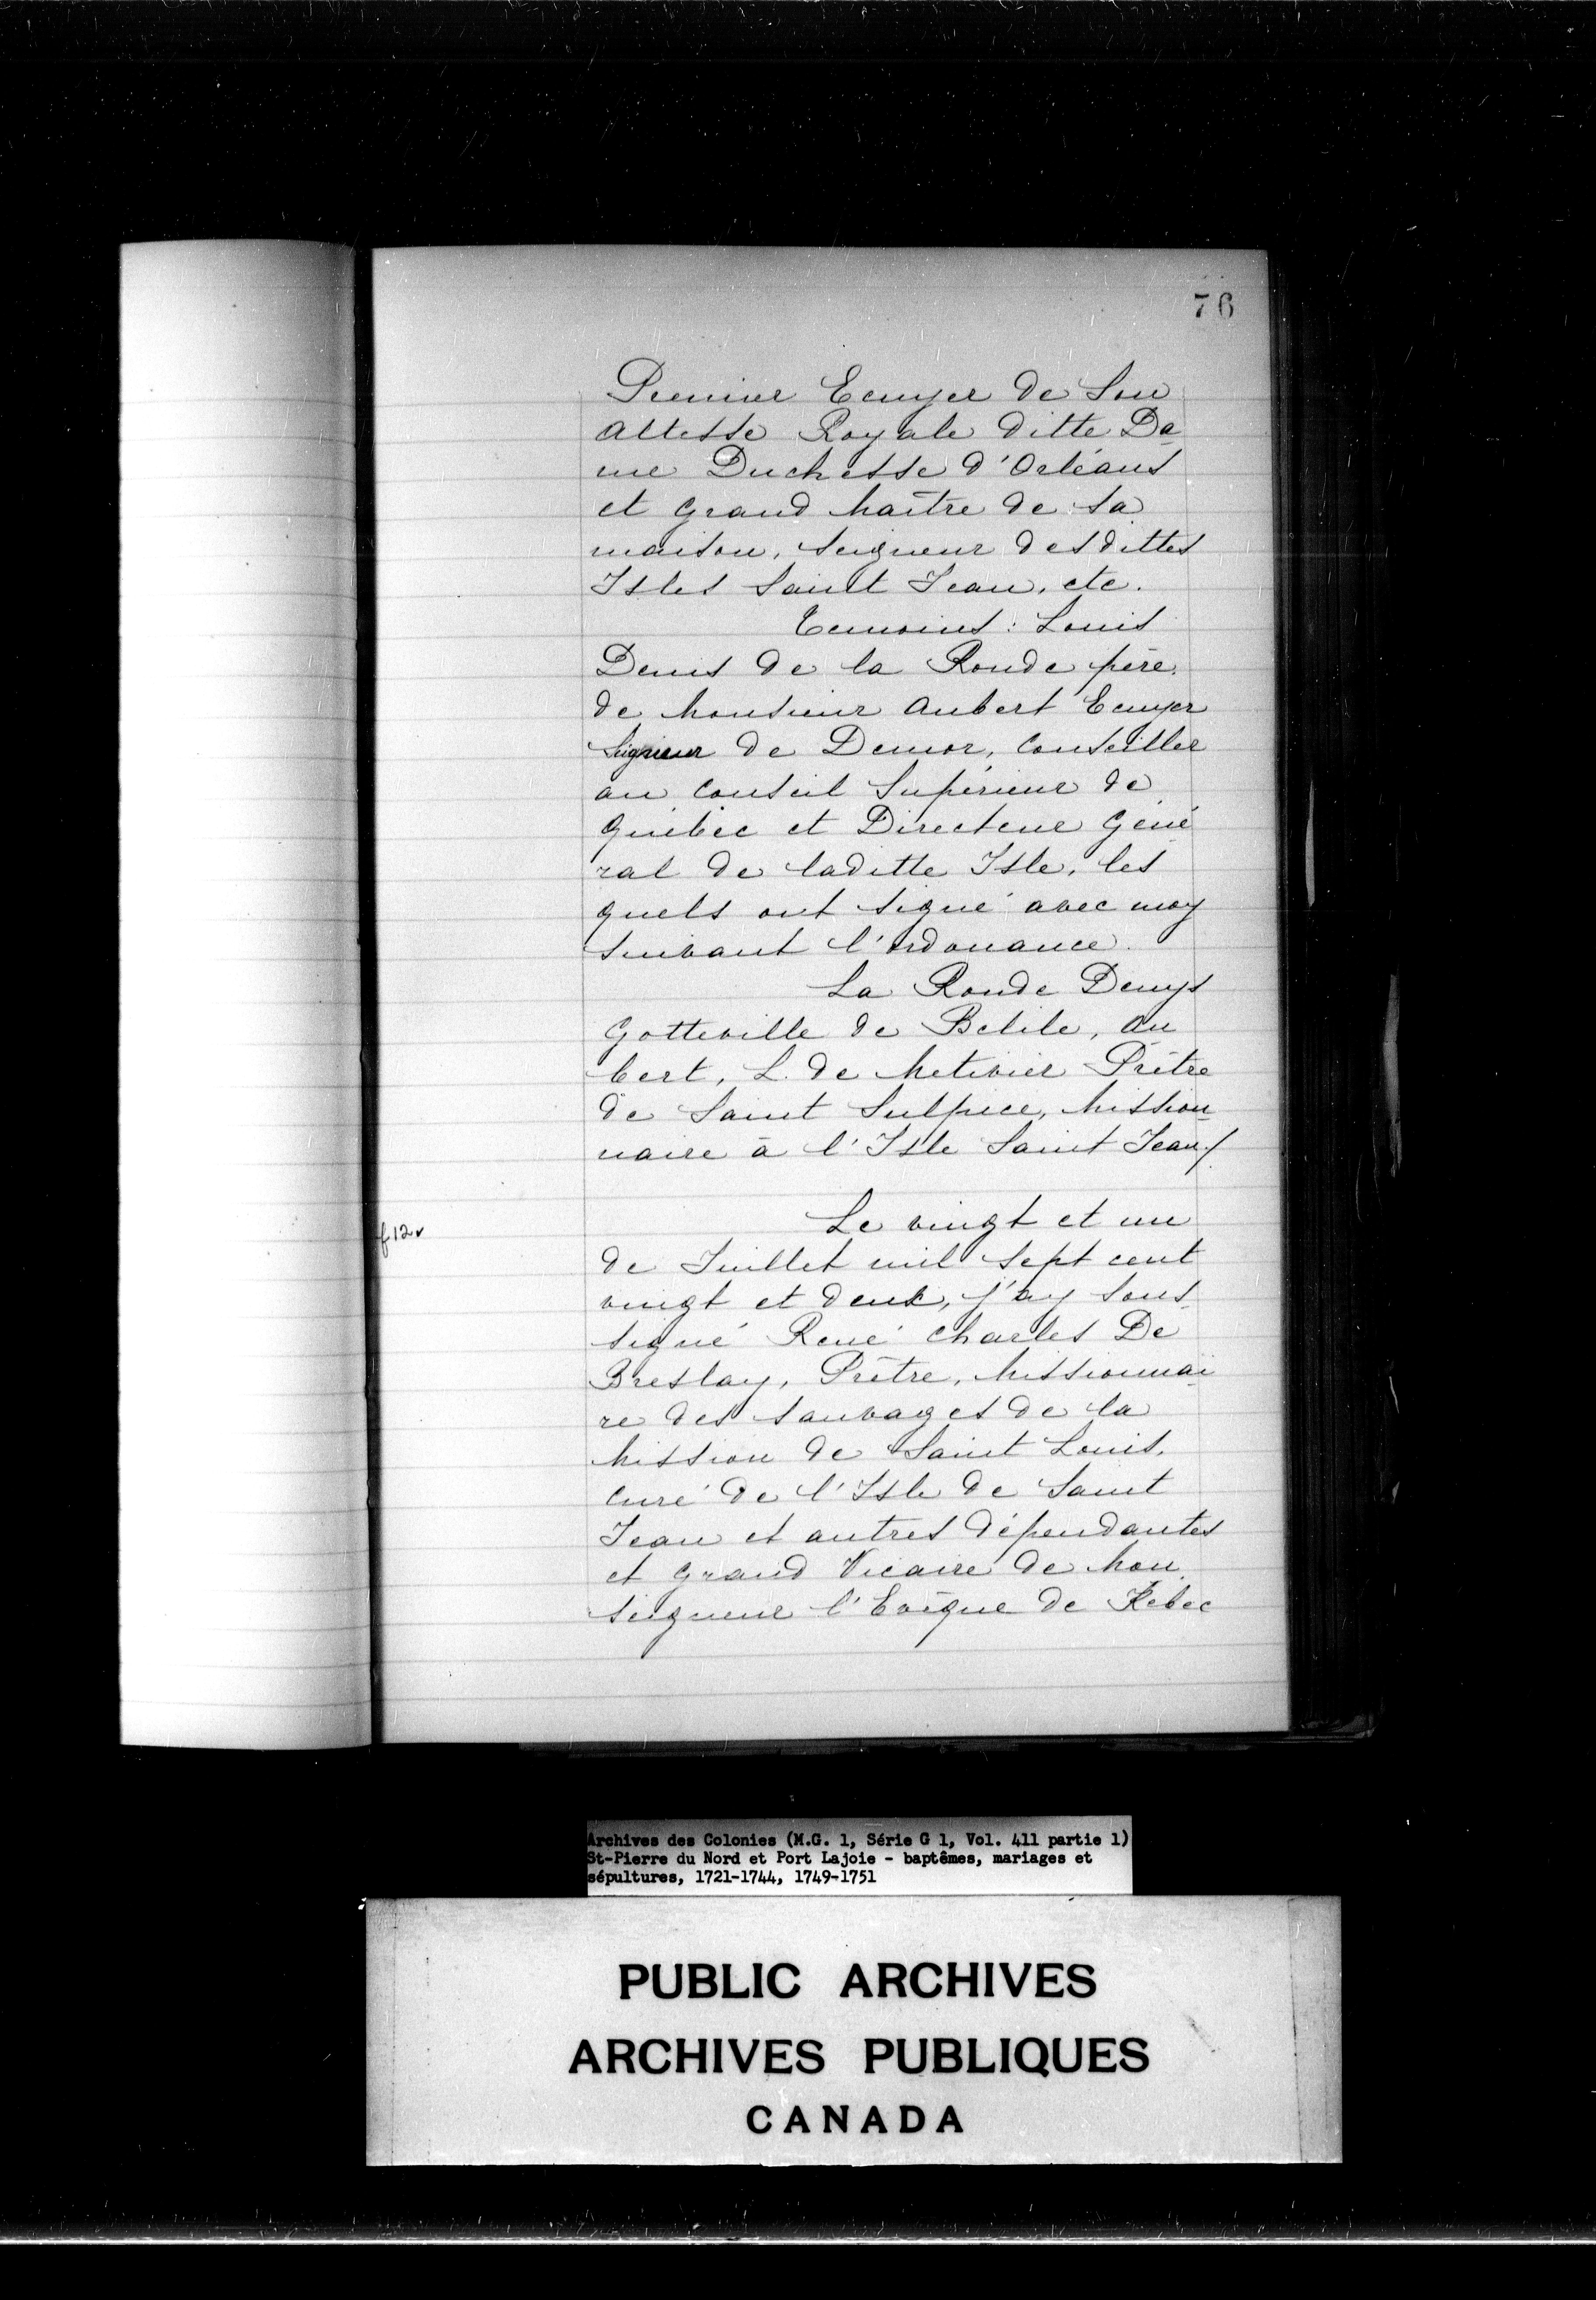 76
Premier Ecuyer de Son
Altesse Royale ditte Da-
me Duchesse d'Orléans
et Grand Maître de Sa
maison, Seigneur desdittes
Isles Saint Jean, etc.
Temoins : Louis
Denis de la Ronde père,
de Monsieur Aubert Ecuyer
Seigneur de Demor, Conseiller
au Conseil Supérieur de
Québec et Directeur Géné
ral de laditte Isle, les
quels ont signé avec moy
suivant l'ordonance.
La Ronde Denys
Gotteville de Belile, Au
bert, L. de Metivier Prêtre
de Saint Sulpice, Mission-
naire à l'Isle Saint Jean./.
f.12v
Le vingt et un
de Juillet mil sept cent
vingt et deux, j'ay Sous-
signé René Charles De
Breslay, Prêtre, Missionnai-
re des Sauvages de la
Mission de Saint Louis,
Curé de l'Isle de Saint
Jean et autres dépendantes
et Grand Vicaire de Mon
seigneur l'Evêque de Kebec
Archives des Colonies (M.G. 1, Série G 1, Vol. 411 partie 1)
St-Pierre du Nord et Port Lajoie - baptêmes, mariages et
sépultures, 1721-1744, 1749-1751
PUBLIC ARCHIVES
ARCHIVES PUBLIQUES
CANADA